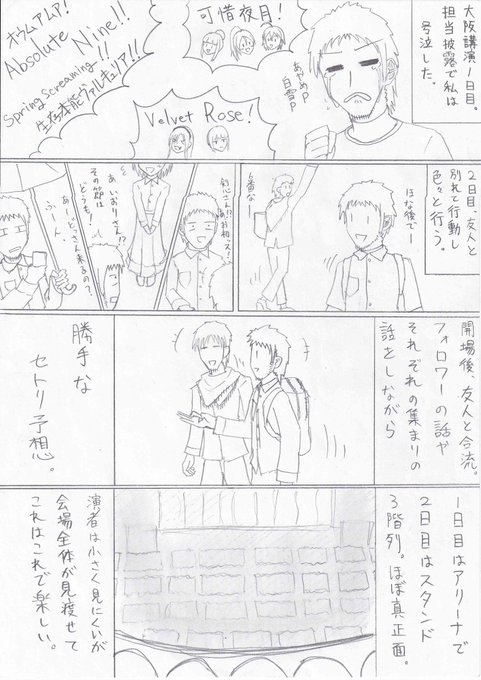 大阪講演1日目。
担当披露で私は
号泣した。
可惜夜月!
あやめP
白雪P
Velvet Rose!
オウムアムア!
Absolute Nine!!
Spring Screaming!!
生存本能ヴァルキュリア!!
2日目、友人と
別れて行動し
色々と行う。
ほな後でー
る番なー
あいおりさん!?
その節は
どうも!
あーど、さん来るの?
ふーん。
開場後、友人と合流。
フォロワーの話や
それぞれの集まりの
話をしながら
勝手な
セトリ予想。
1日目はアリーナで
2日目はスタンド
3階列。ほぼ真正面。
演者は小さく見にくいが
会場全体が見渡せて
これはこれで楽しい。